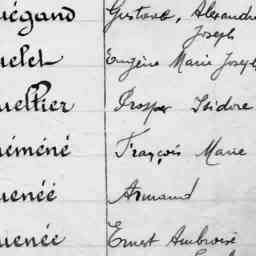 uégand Gustave, Alexandre
Joseph
uelet Eugène Marie Joseph
uellier Prosper Isidore
uéméné François Marie
uenéé Armand
uenée Ernest Ambroise